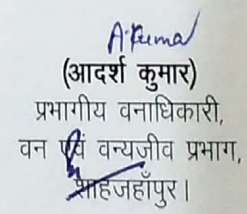 A.Kumar
(आदर्श कुमार)
प्रभागीय वनाधिकारी,
वन एवं वन्यजीव प्रभाग,
शाहजहाँपुर।